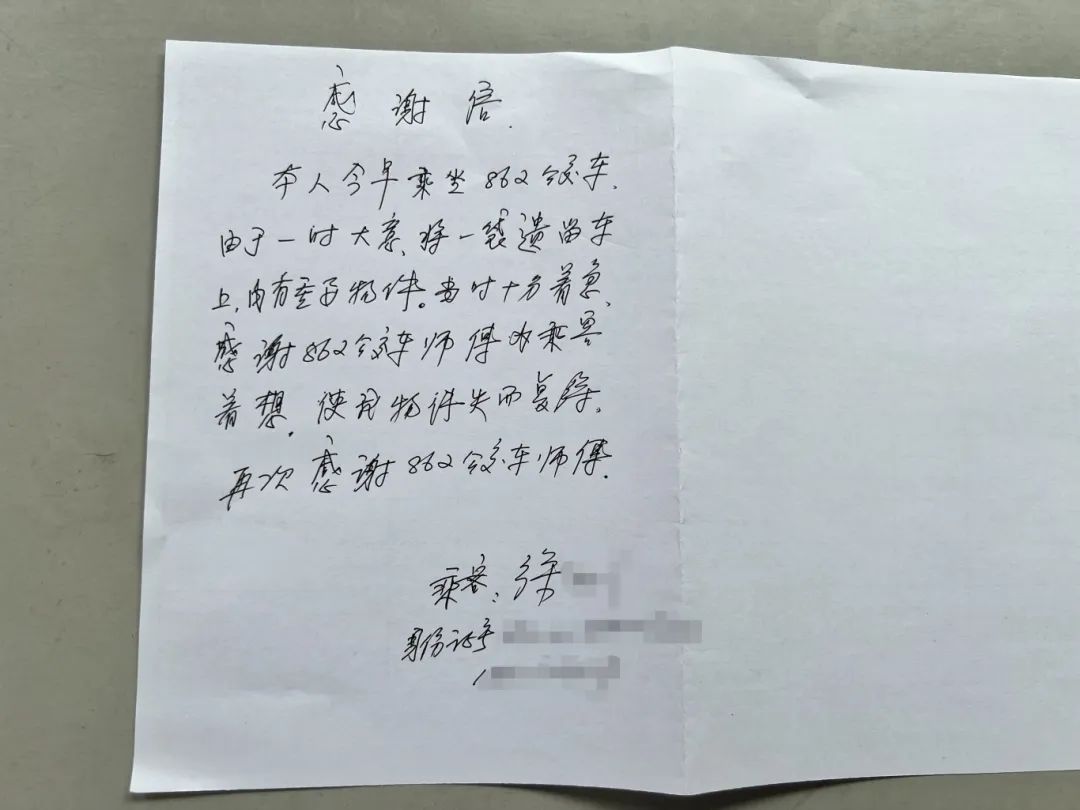 感谢信.
本人今早乘坐862公交车,
由于一时大意,将一袋遗留车
上,内有重要物件。当时十分着急,
感谢862公交车师傅为乘客
着想,使我物件失而复得,
再次感谢862公交车师傅.
乘客:徐
身份证号